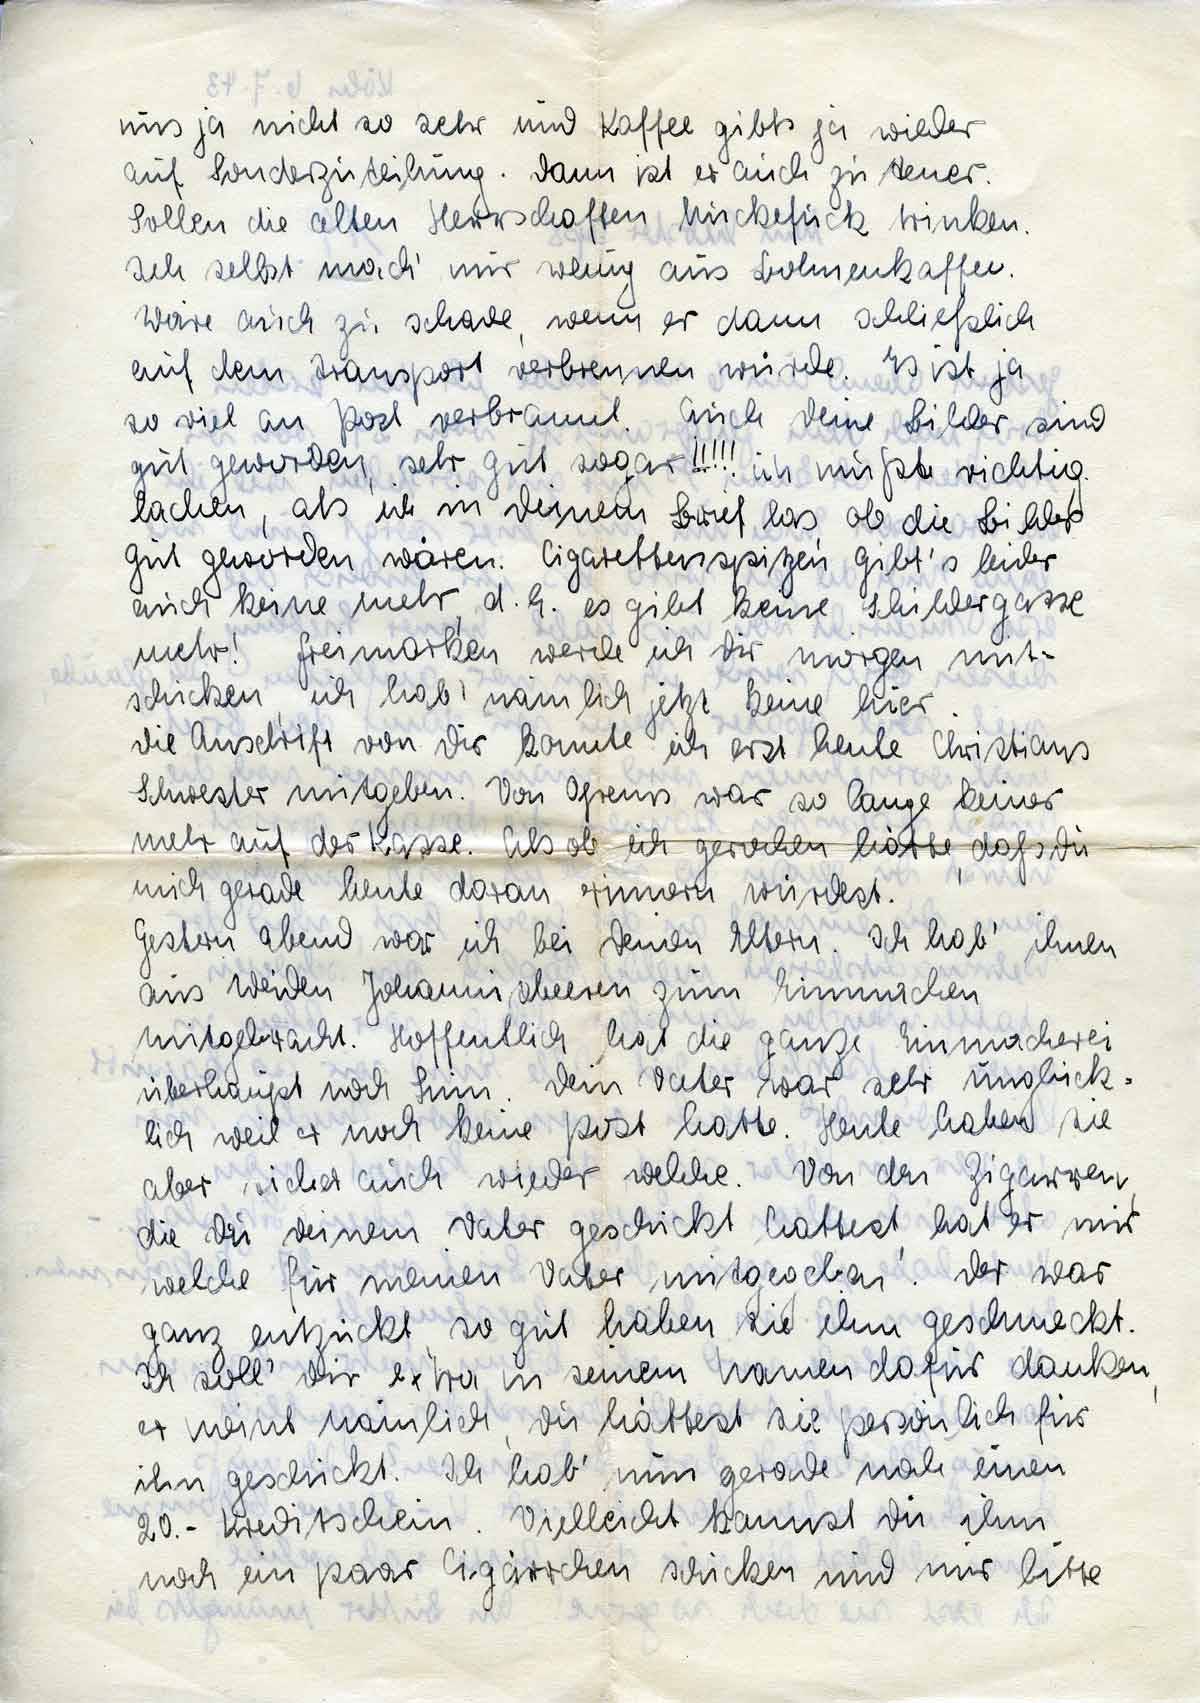 uns ja nicht so sehr und Kaffee gibts ja wieder
auf Sonderzuteilung. Dann ist er auch zu teuer.
Sollen die alten Herrschaften Muckefuck trinken.
Ich selbst mach' mir wenig aus Bohnenkaffee.
Wäre auch zu schade, wenn er dann schließlich
auf dem Transport verbrennen würde. Es ist ja
so viel an Post verbrannt. Auch Deine Bilder sind
gut geworden, sehr gut sogar!!!!! ich mußte richtig
lachen, als ich in Deinem Brief las ob die Bilder
gut geworden wären. Cigarettenspitzen gibt's leider
auch keine mehr, d.h. es gibt keine Schildergasse
mehr! Freimarken werde ich Dir morgen mit-
schicken, ich hab' nämlich jetzt keine hier.
Die Anschrift von Dir konnte ich erst heute Christians
Schwester mitgeben. Von war so lange keiner
mehr auf der Kasse. Als ob ich gerochen hätte, daß Du
mich gerade heute daran erinnern würdest.
Gestern Abend war ich bei Deinen Eltern. Ich hab' ihnen
aus Weiden Johannisbeeren zum Einmachen
mitgebracht. Hoffentlich hat die ganze Einmacherei
überhaupt noch Sinn. Dein Vater war sehr unglück-
lich weil er noch keine Post hatte. Heute haben sie
aber sicher auch wieder welche. Von den Zigarren,
die Du deinem Vater geschickt hattest hat er mir
welche für meinen Vater mitgegeben! Der war
ganz entzückt, so gut haben sie ihm geschmeckt.
Ich soll' Dir extra in seinem Namen dafür danken,
er meint nämlich, Du hättest sie persönlich für
ihn geschickt. Ich hab' nun gerade noch einen
20.- Kreditschein. Vielleicht kannst Du ihm
noch ein paar Cigärrchen schicken und mir bitte
Köln 6.7.43